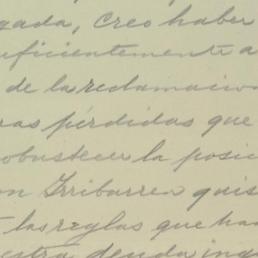 gada, creo haber
suficientemente a
de la reclamacion
ras pérdidas que
robustecer la posic
on Irribarren quis
las reglas que han
estra deuda ind